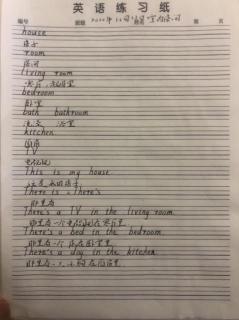 英 语 练 习 纸
house
房子
room
房间
living room
客厅,起居室
bedroom
卧室
bath bathroom
洗澡 浴室
kitchen
厨房
TV
电视机
This is my house
这是我的房子
There is = There's
那里有
There's a TV in the living room.
那里有一个电视机在客厅里
There's a bed in the bedroom.
那里有一个床在卧室里
There's a dog in the kitchen.
那里有一只小狗在厨房里